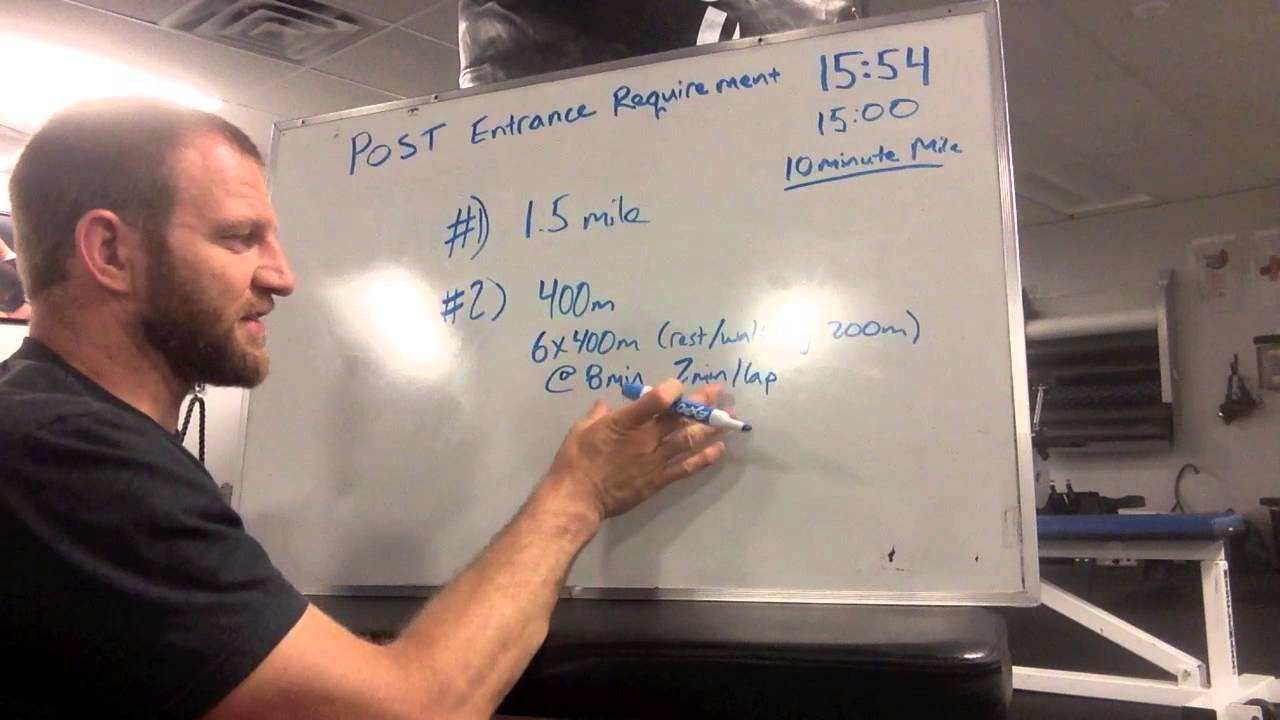 POST Entrance Requirement 15:54
15:00
10 minute Mile
#1) 1.5 mile
#2) 400m
6x400m (rest/walk 200m)
@ 8min 2min/lap
EXPO